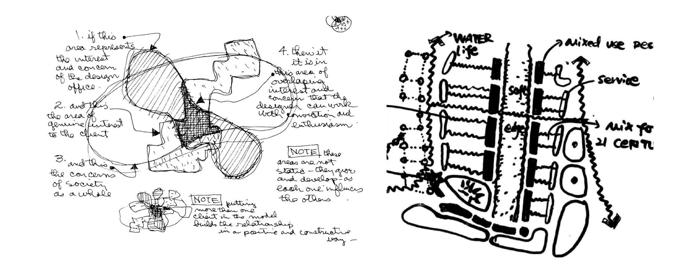 1. if this
area represents
the interest
and concern
of the design
office.
2. and this
the area of
genuine interest
to the client
3. and this
the concerns
of society
as a whole
4. then it
is in
this area of
overlapping
interest and
concern that the
designer can work
with conviction and
enthusiasm
NOTE these
areas are not
static - they grow
and develop - as
each one influences
the others.
NOTE putting
more than one
client in the model
builds the relationship
in a positive and constructive
way -
WATER
life
mixed use
Service
soft
edge
Mix for
21